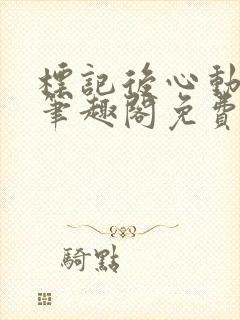 標記後心動
筆趣閣免費
騎點